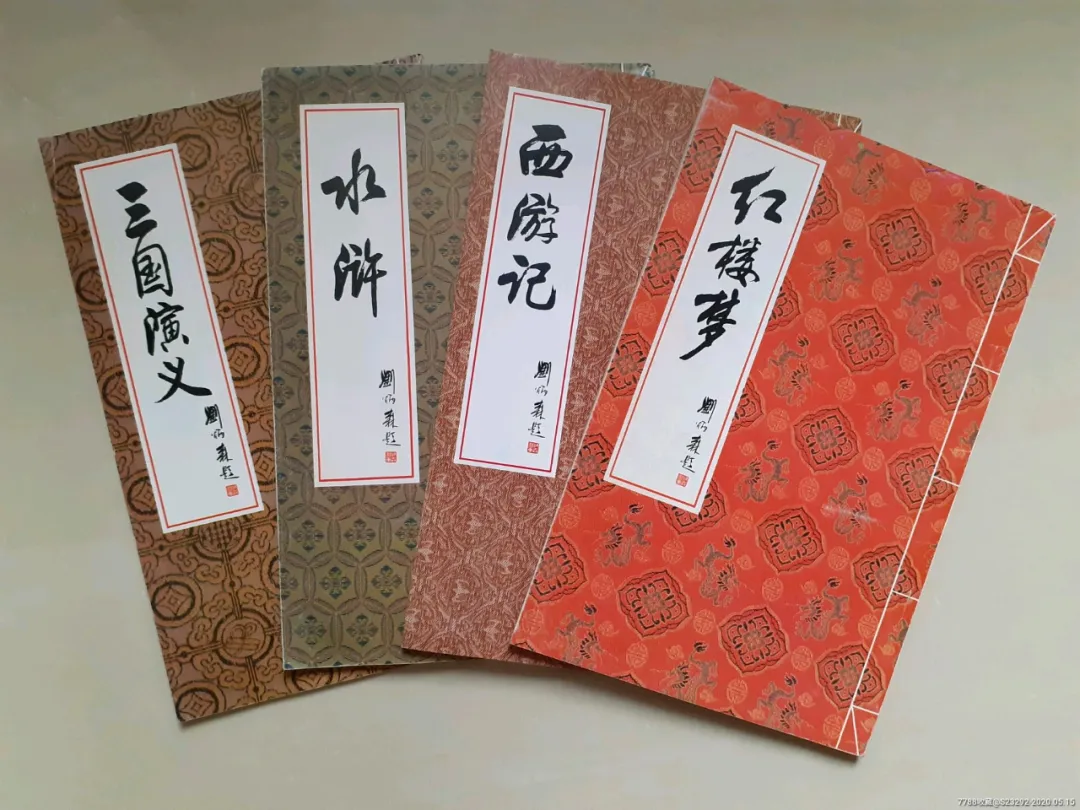 三国演义
劉炳森题
水浒
劉炳森题
西游记
劉炳森题
红楼梦
劉炳森题
7788收藏@S23292-2020.05.15